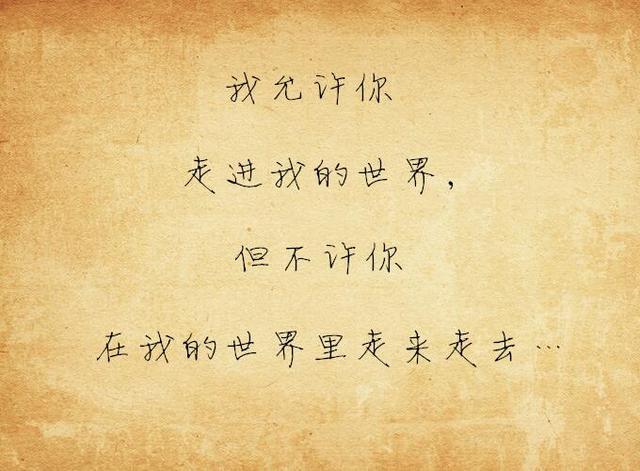 我允许你
走进我的世界,
但不许你
在我的世界里走来走去…